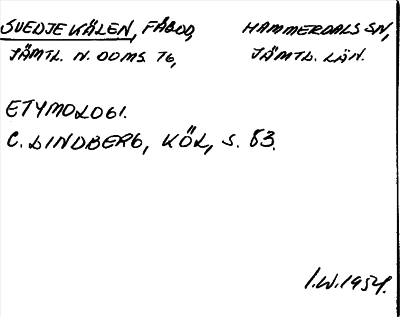 SVEDJEKÄLEN, FÄBOD, HAMMERDALS SN,
JÄMTL. N. DOMS. 76, JÄMTL. LÄN.
ETYMOLOGI.
C. LINDBERG, KÖL, S. 83.
I.W. 1954.